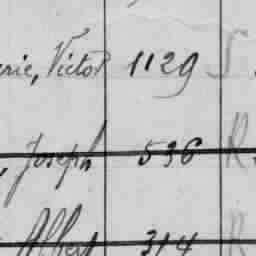 erie, Victor 1129 S
, Joseph 536 R
Albert 314 R